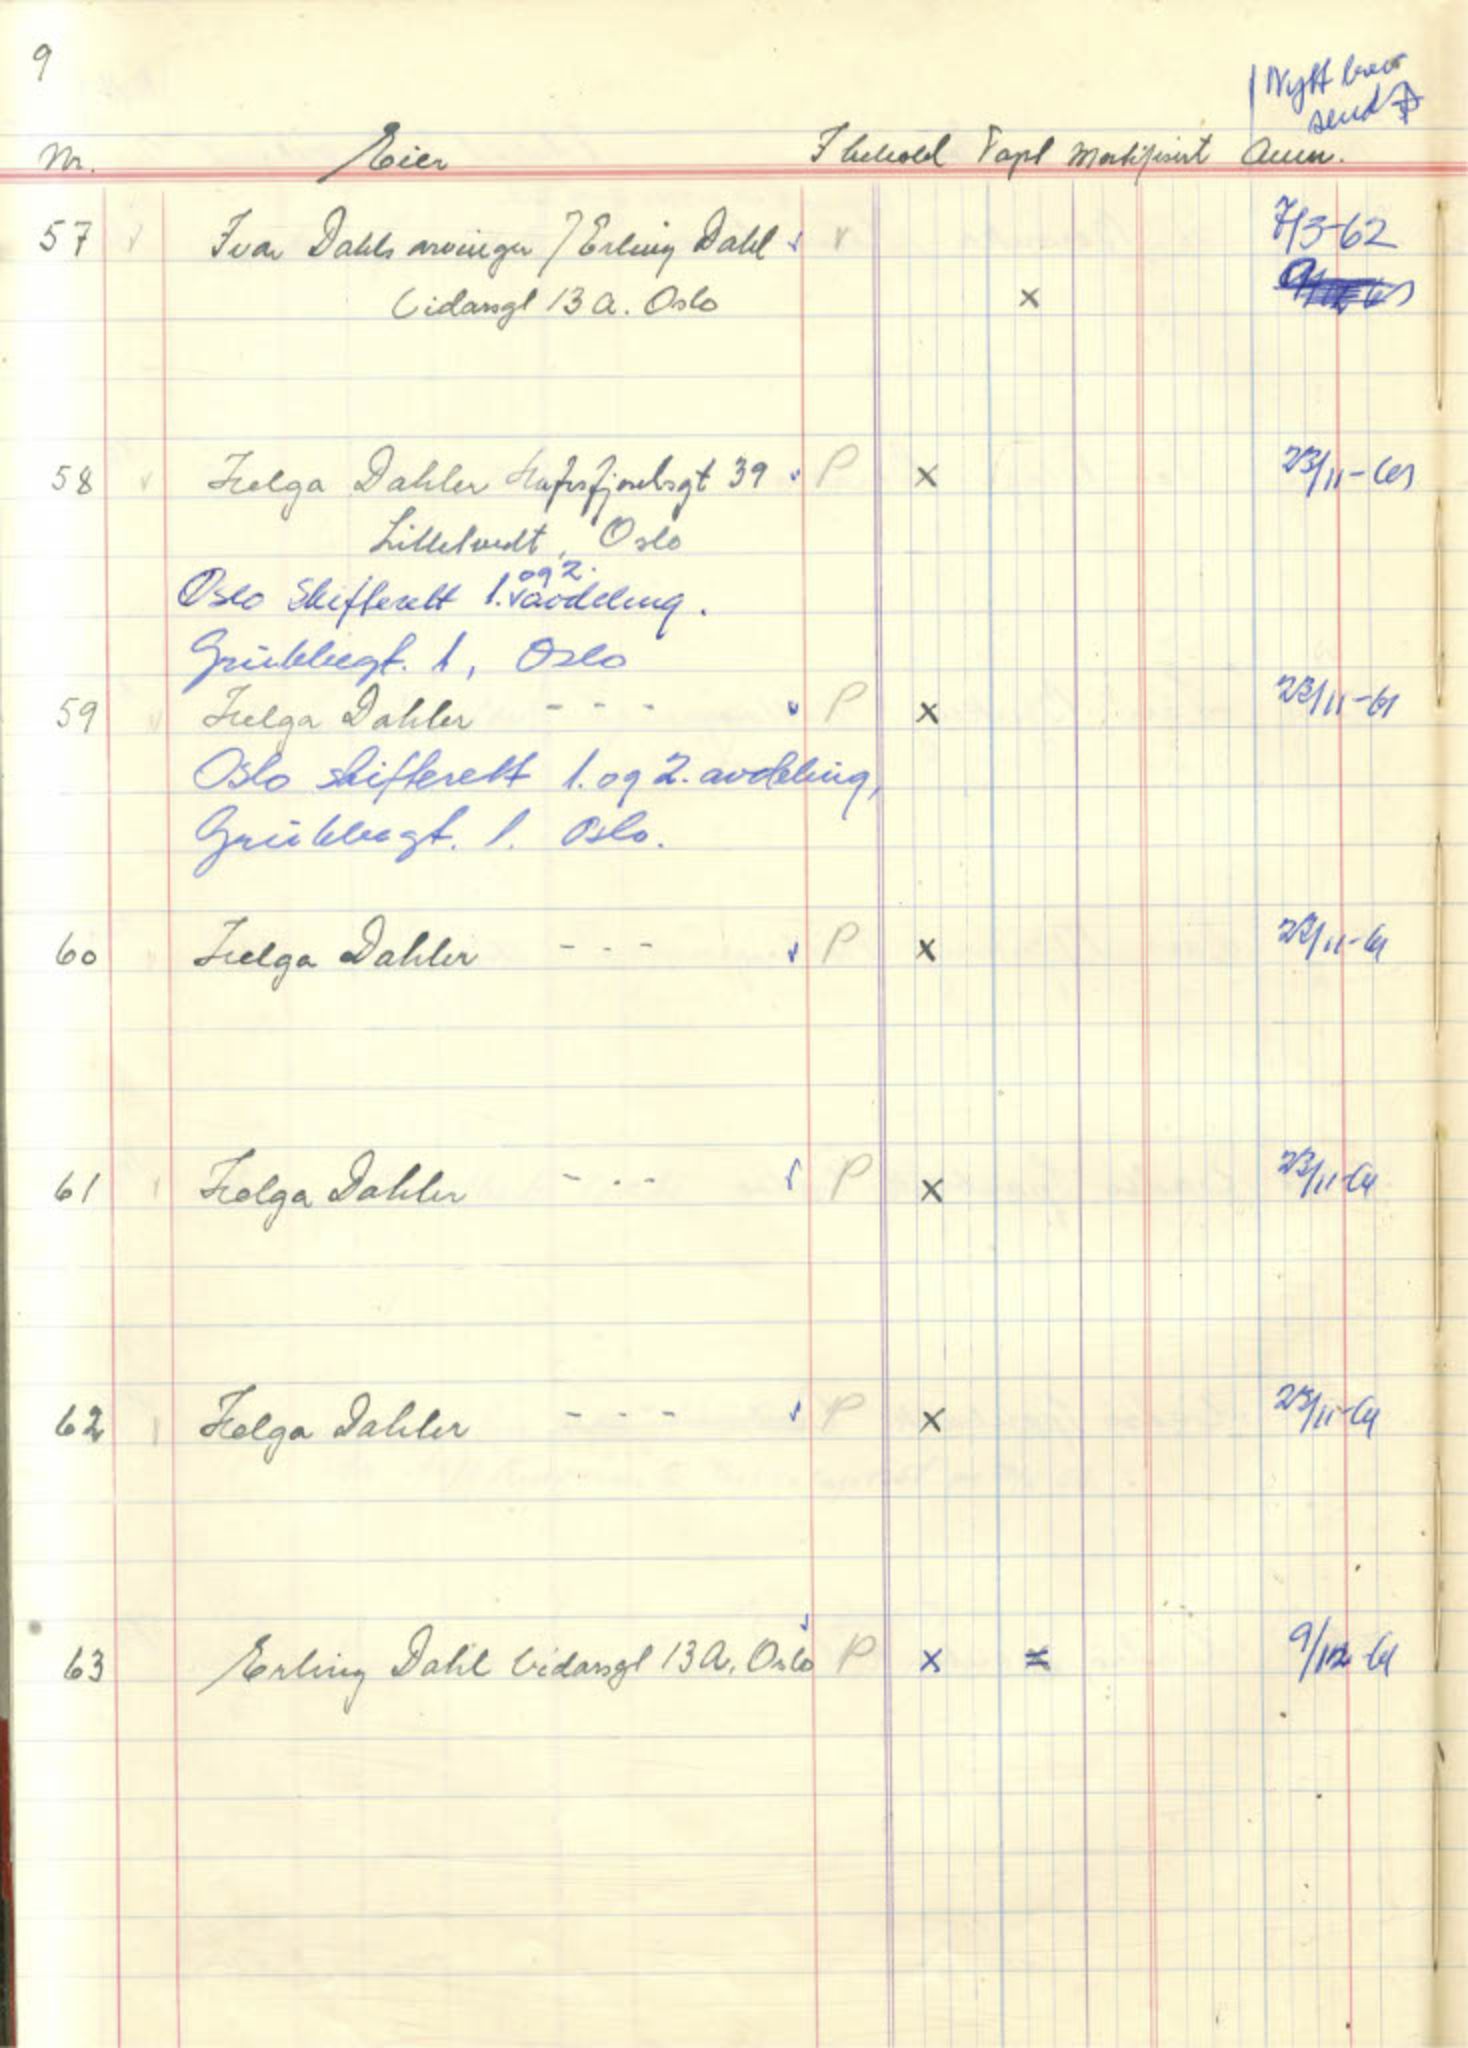 9
Nytt brev
sendt
Nr. Eier I behold Tapt Mortifisert Anm.
57 Ivar Dahls arvinger / Erling Dahl 7/3-62
Vidarsgt 13 A. Oslo x
58 Helga Dahler Hafrsfjordsgt 39 P x 23/11-61
Oslo
og 2.
Oslo Skifterett 1. avdeling.
Grubbegt. 1, Oslo
59 Helga Dahler - - - P x 23/11-61
Oslo skifterett 1. og 2. avdeling,
Grubbegt. 1. Oslo.
60 Helga Dahler - - - P x 23/11-61
61 Helga Dahler - - - P x 23/11-61
62 Helga Dahler - - - P x 23/11-61
63 Erling Dahl Vidarsgt 13 A, Oslo P x 9/12-61